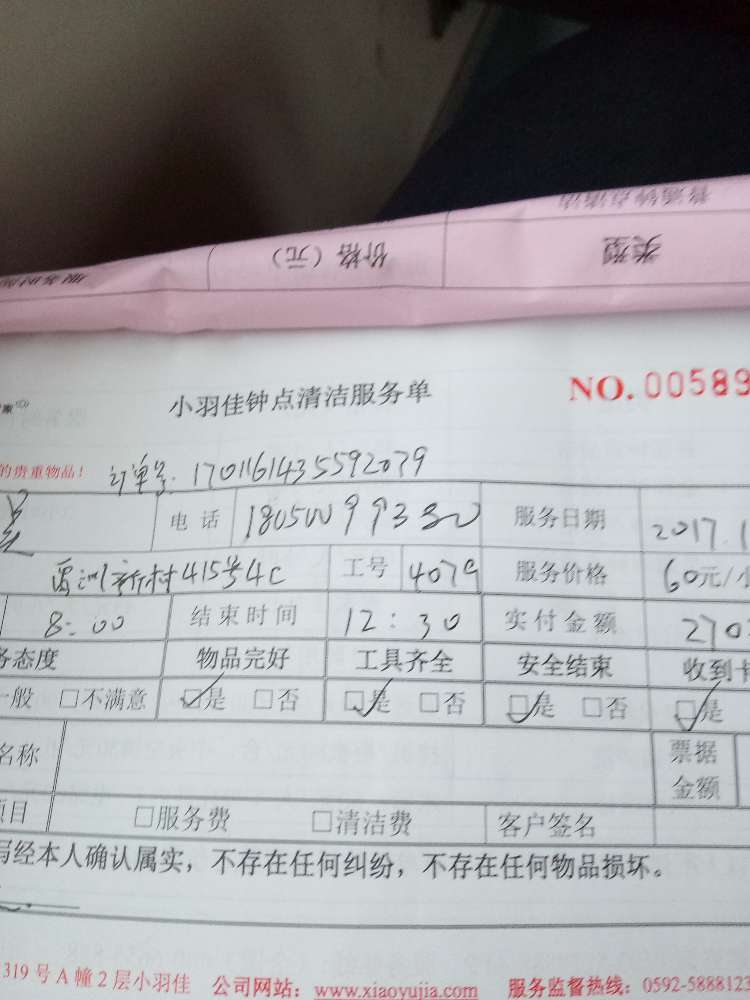 普通钟点清洁
类型 价格（元） 服务时间
小羽佳钟点清洁服务单 NO.00589
的贵重物品！ 订单号：1701161435592079
电话 18050099330 服务日期 2017.1
禹洲新村415号4C 工号 4079 服务价格 60元/小
8:00 结束时间 12:30 实付金额 270
务态度 物品完好 工具齐全 安全结束 收到卡
一般 □不满意 ☑是 □否 ☑是 □否 ☑是 □否 ☑是
名称 票据
金额
项目 □服务费 □清洁费 客户签名
写经本人确认属实，不存在任何纠纷，不存在任何物品损坏。
319号A幢2层小羽佳 公司网站：www.xiaoyujia.com 服务监督热线：0592-5888123